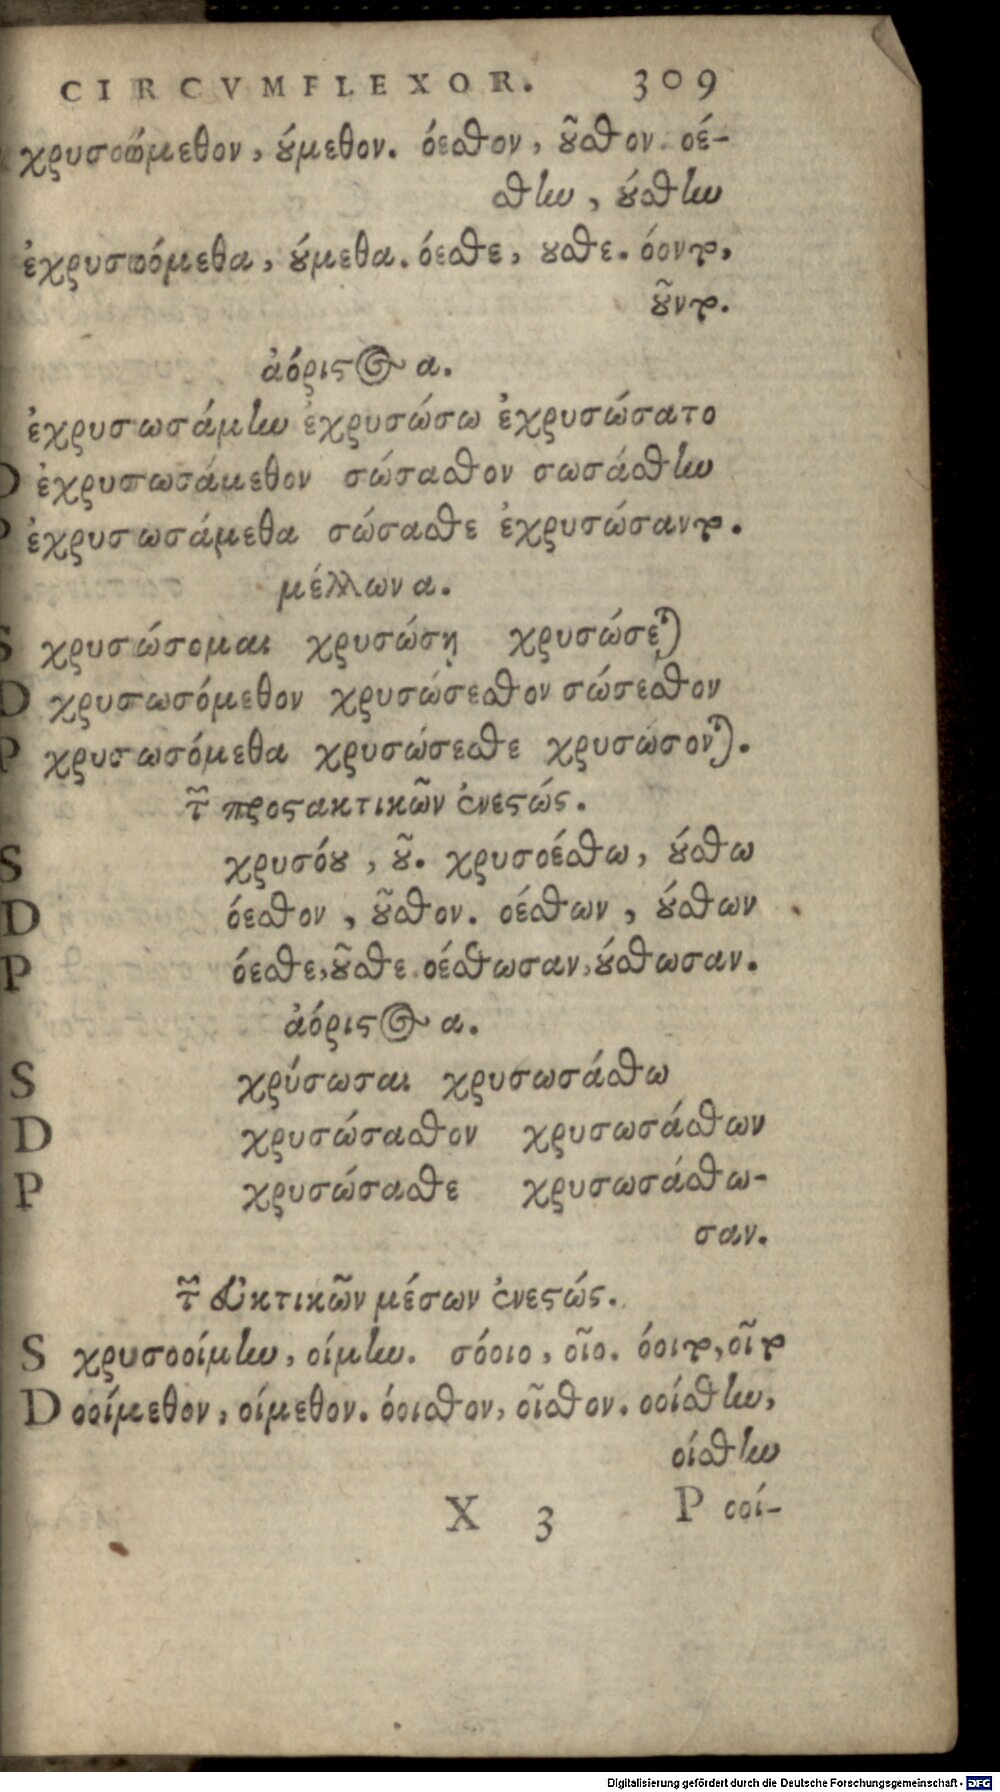 CIRCVMFLEXOR. 309
χρυσοώμεθον, ούμεθον. όεσθον, οῦσθον. οέ-
σθίω, ούσθίω
ἐχρυσοόμεθα, ούμεθα. όεσθε, ουσθε. όοντο,
οῦντο.
ἀόριστος α.
ἐχρυσωσάμίω ἐχρυσώσω ἐχρυσώσατο
D ἐχρυσωσάμεθον σώσασθον σωσάσθίω
P ἐχρυσωσάμεθα σώσασθε ἐχρυσώσαντο.
μέλλων α.
S χρυσώσομαι χρυσώσῃ χρυσώσεται
D χρυσωσόμεθον χρυσώσεσθον σώσεσθον
P χρυσωσόμεθα χρυσώσεσθε χρυσώσονται.
τῶν προστακτικῶν ἐνεστώς.
S χρυσόου, οῦ. χρυσοέσθω, ούσθω
D όεσθον, οῦσθον. οέσθων, ούσθων
P όεσθε, οῦσθε. οέσθωσαν, ούσθωσαν.
ἀόριστος α.
S χρύσωσαι χρυσωσάσθω
D χρυσώσασθον χρυσωσάσθων
P χρυσώσασθε χρυσωσάσθω-
σαν.
τῶν εὐκτικῶν μέσων ἐνεστώς.
S χρυσοοίμίω, οίμίω. σόοιο, οῖο. όοιτο, οῖτο
D οοίμεθον, οίμεθον. όοισθον, οῖσθον. οοίσθίω,
οίσθίω
X 3 P οοί-
Digitalisierung gefördert durch die Deutsche Forschungsgemeinschaft - DFG